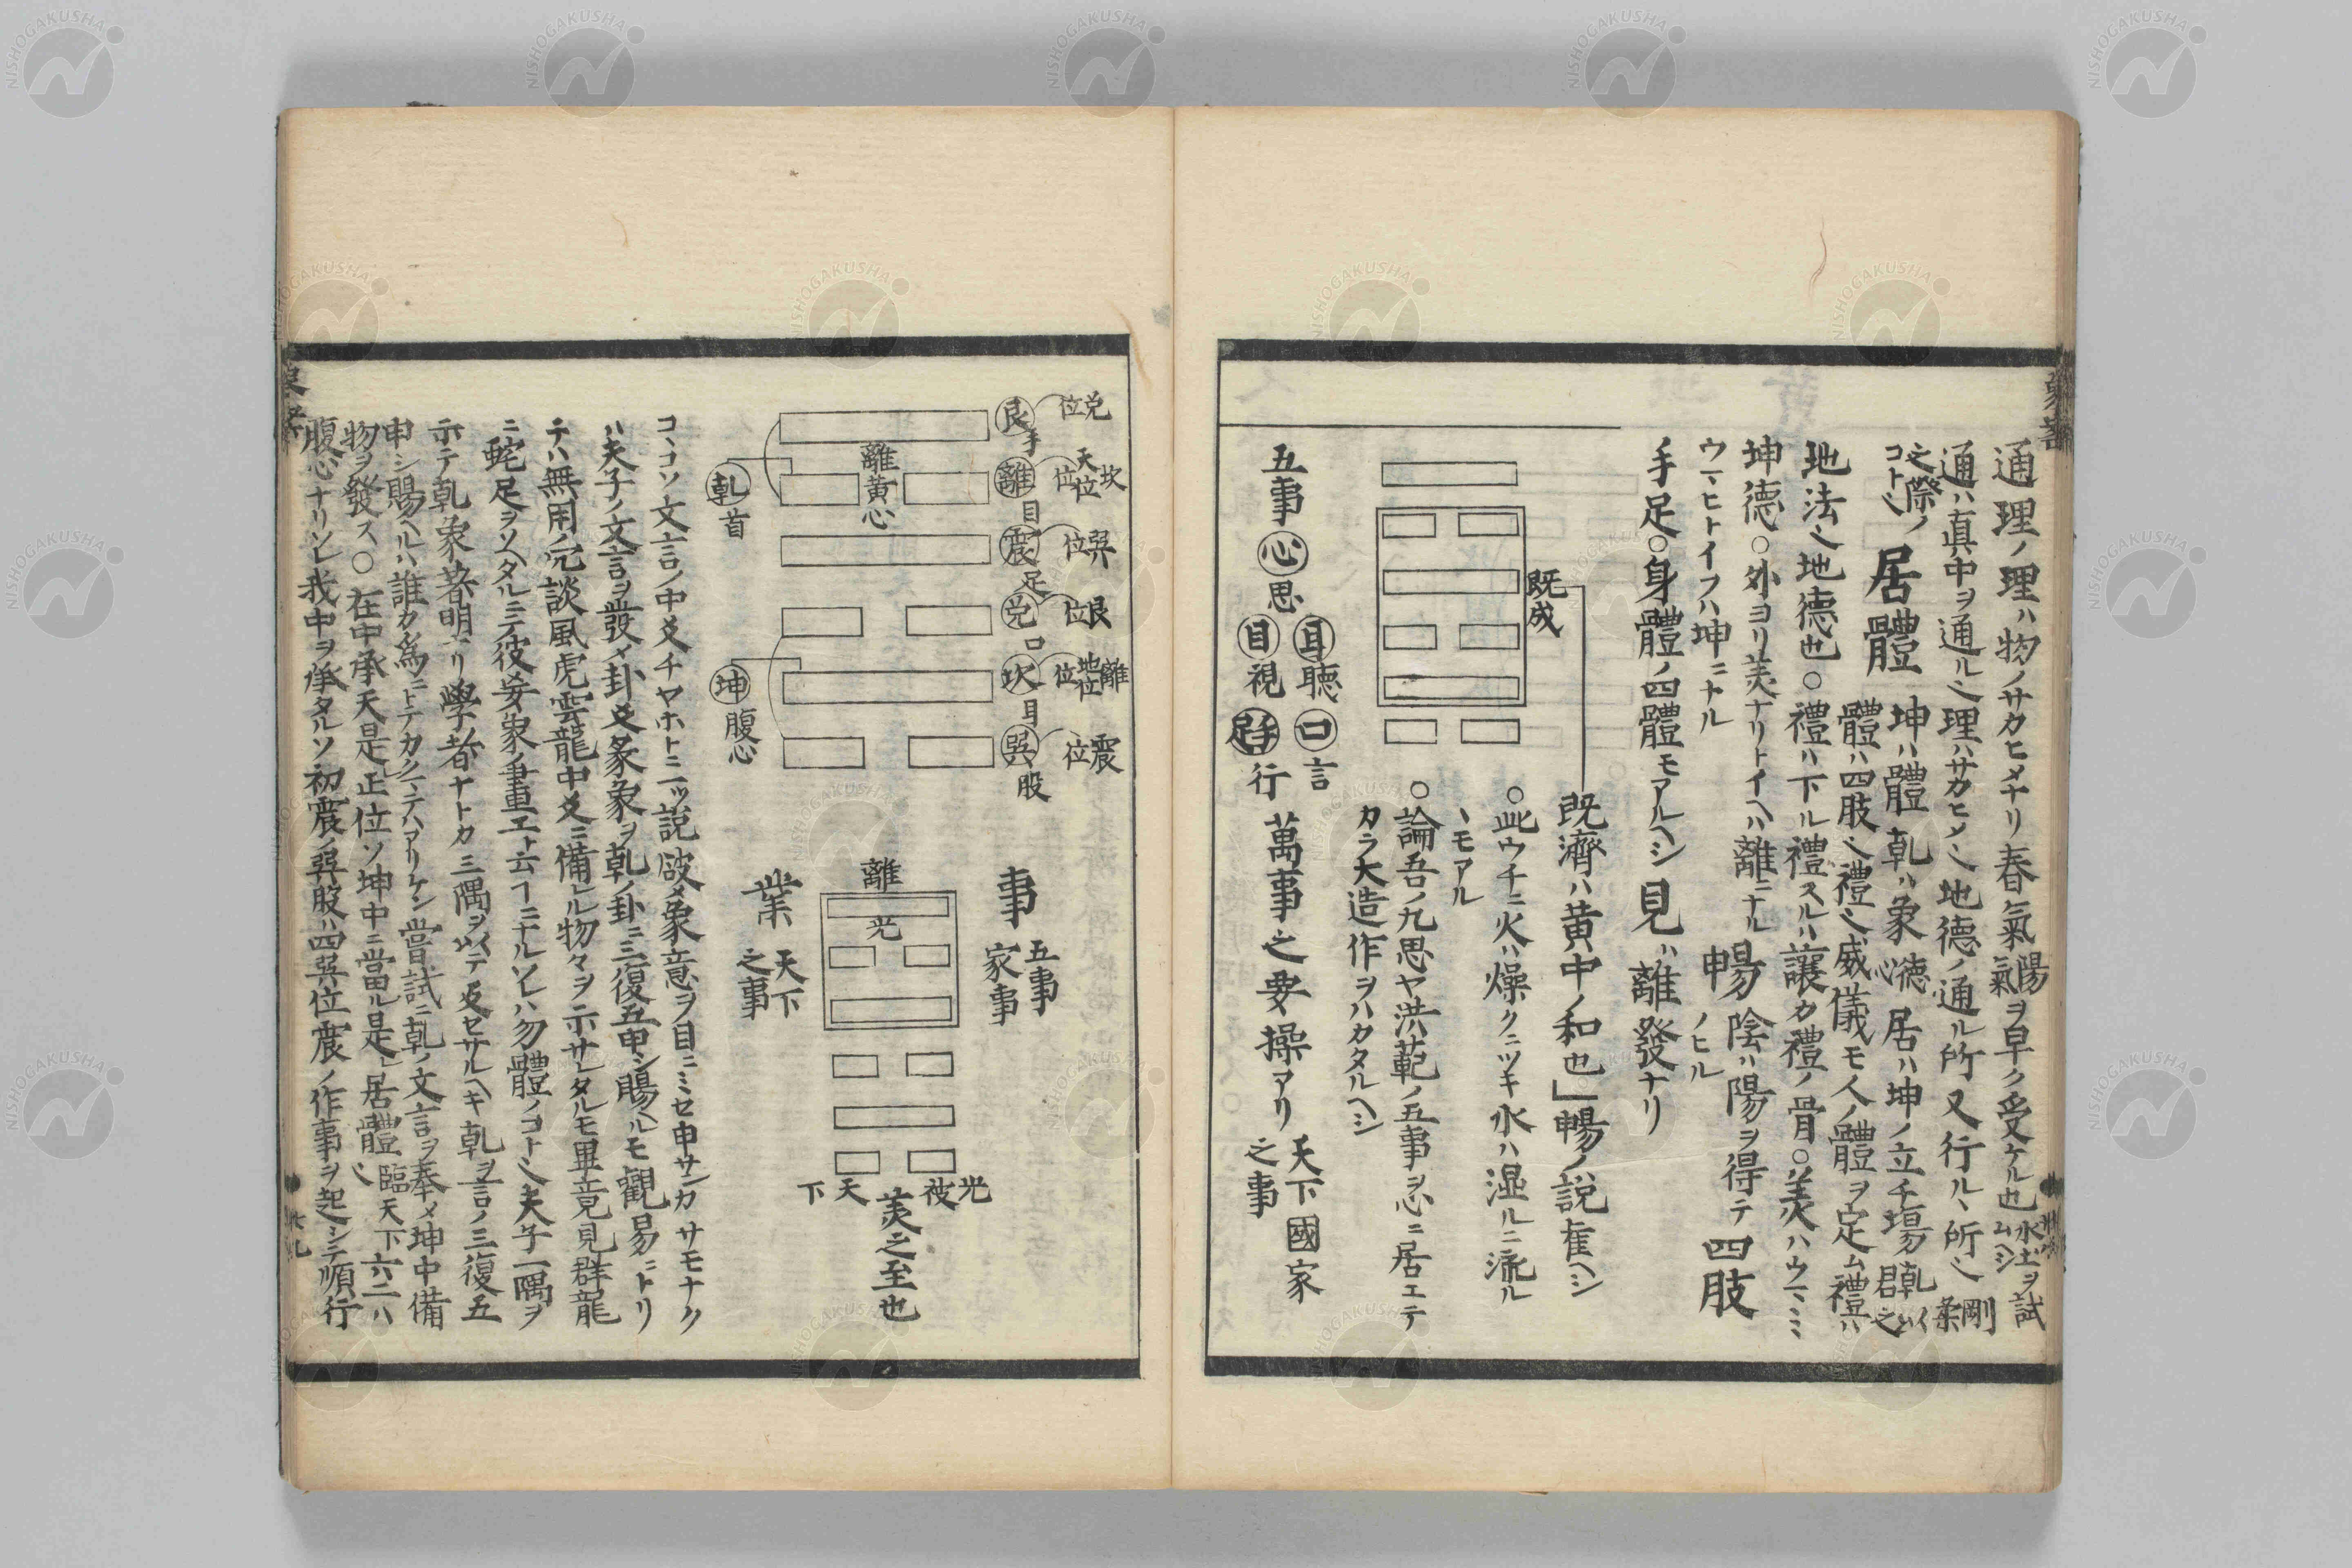 通理ノ理ハ物ノサカヒメナリ春氣陽氣ヲ早ク受ケル也水土ヲ試ムヘシ
通ハ真中ヲ通ル也理ハサカヒメ也地德ノ通ル所又行ル丶所也剛柔
之際ノコト也
居體
坤ハ體乾ハ象德心居ハ坤ノ立チ場乾以君之
體ハ四肢也禮也威儀モ人ノ體ヲ定ム禮ハ
地法也地德也○禮ハ下ル禮スルハ讓カ禮ノ骨○美ハウマミ
坤德○外ヨリ美ナリトイヘハ離ニナル
ウマヒトイフハ坤ニナル
暢
陰ハ陽ヲ得テ
ノヒル
四肢
手足○身體ノ四體モアルヘシ
見ハ離發ナリ
既成
既濟ハ黄中ノ和也」暢ノ說重ヘシ
○此ウチニ火ハ燥クニツキ水ハ湿ルニ流ル
丶モアル
○論吾ノ九思ヤ洪範ノ五事ヲ心ニ居エテ
カラ大造作ヲハカタルヘシ
五事
心思
耳聽
目視
口言
手足行
萬事之要操アリ
天下國家
之事
兌位
艮手
坎天位位
離目
巽位
震足
艮位
兌口
離地位位
坎耳
震位
巽股
離黄心
乾首
坤腹心
事
五事
家事
離
光
業
天下
之事
光被天下
美之至也
コ丶コソ文言ノ中爻チヤホトニツ說破メ象意ヲ目ニミセ申サンカサモナク
ハ夫子ノ文言ヲ發メ卦爻彖象ヲ乾ノ卦ニ三復五申シ賜ヘルモ觀易ニトリ
テハ無用ノ冗談風虎雲龍中爻ニ備レル物々ヲ示サレタルモ畢竟見群龍
ニ蛇足ヲソヘタルニテ彼妄象ノ畫工ト云フニナルソレハ勿體ノコト也夫子一隅ヲ
示テ乾象著明ナリ學者ナトカ三隅ヲ以テ反セサルヘキ乾ヲ言ノ三復五
申シ賜ヘルハ誰カ為ニトテカクマテハアリケン嘗試ニ乾ノ文言ヲ奉メ坤中備
物ヲ發ス○在中承天是正位ソ坤中ニ當ル是」居體也臨天下六二ハ
腹心ナリソレ我中ヲ承タルソ初震ノ巽股ハ四巽位震ノ作事ヲ起シテ順行